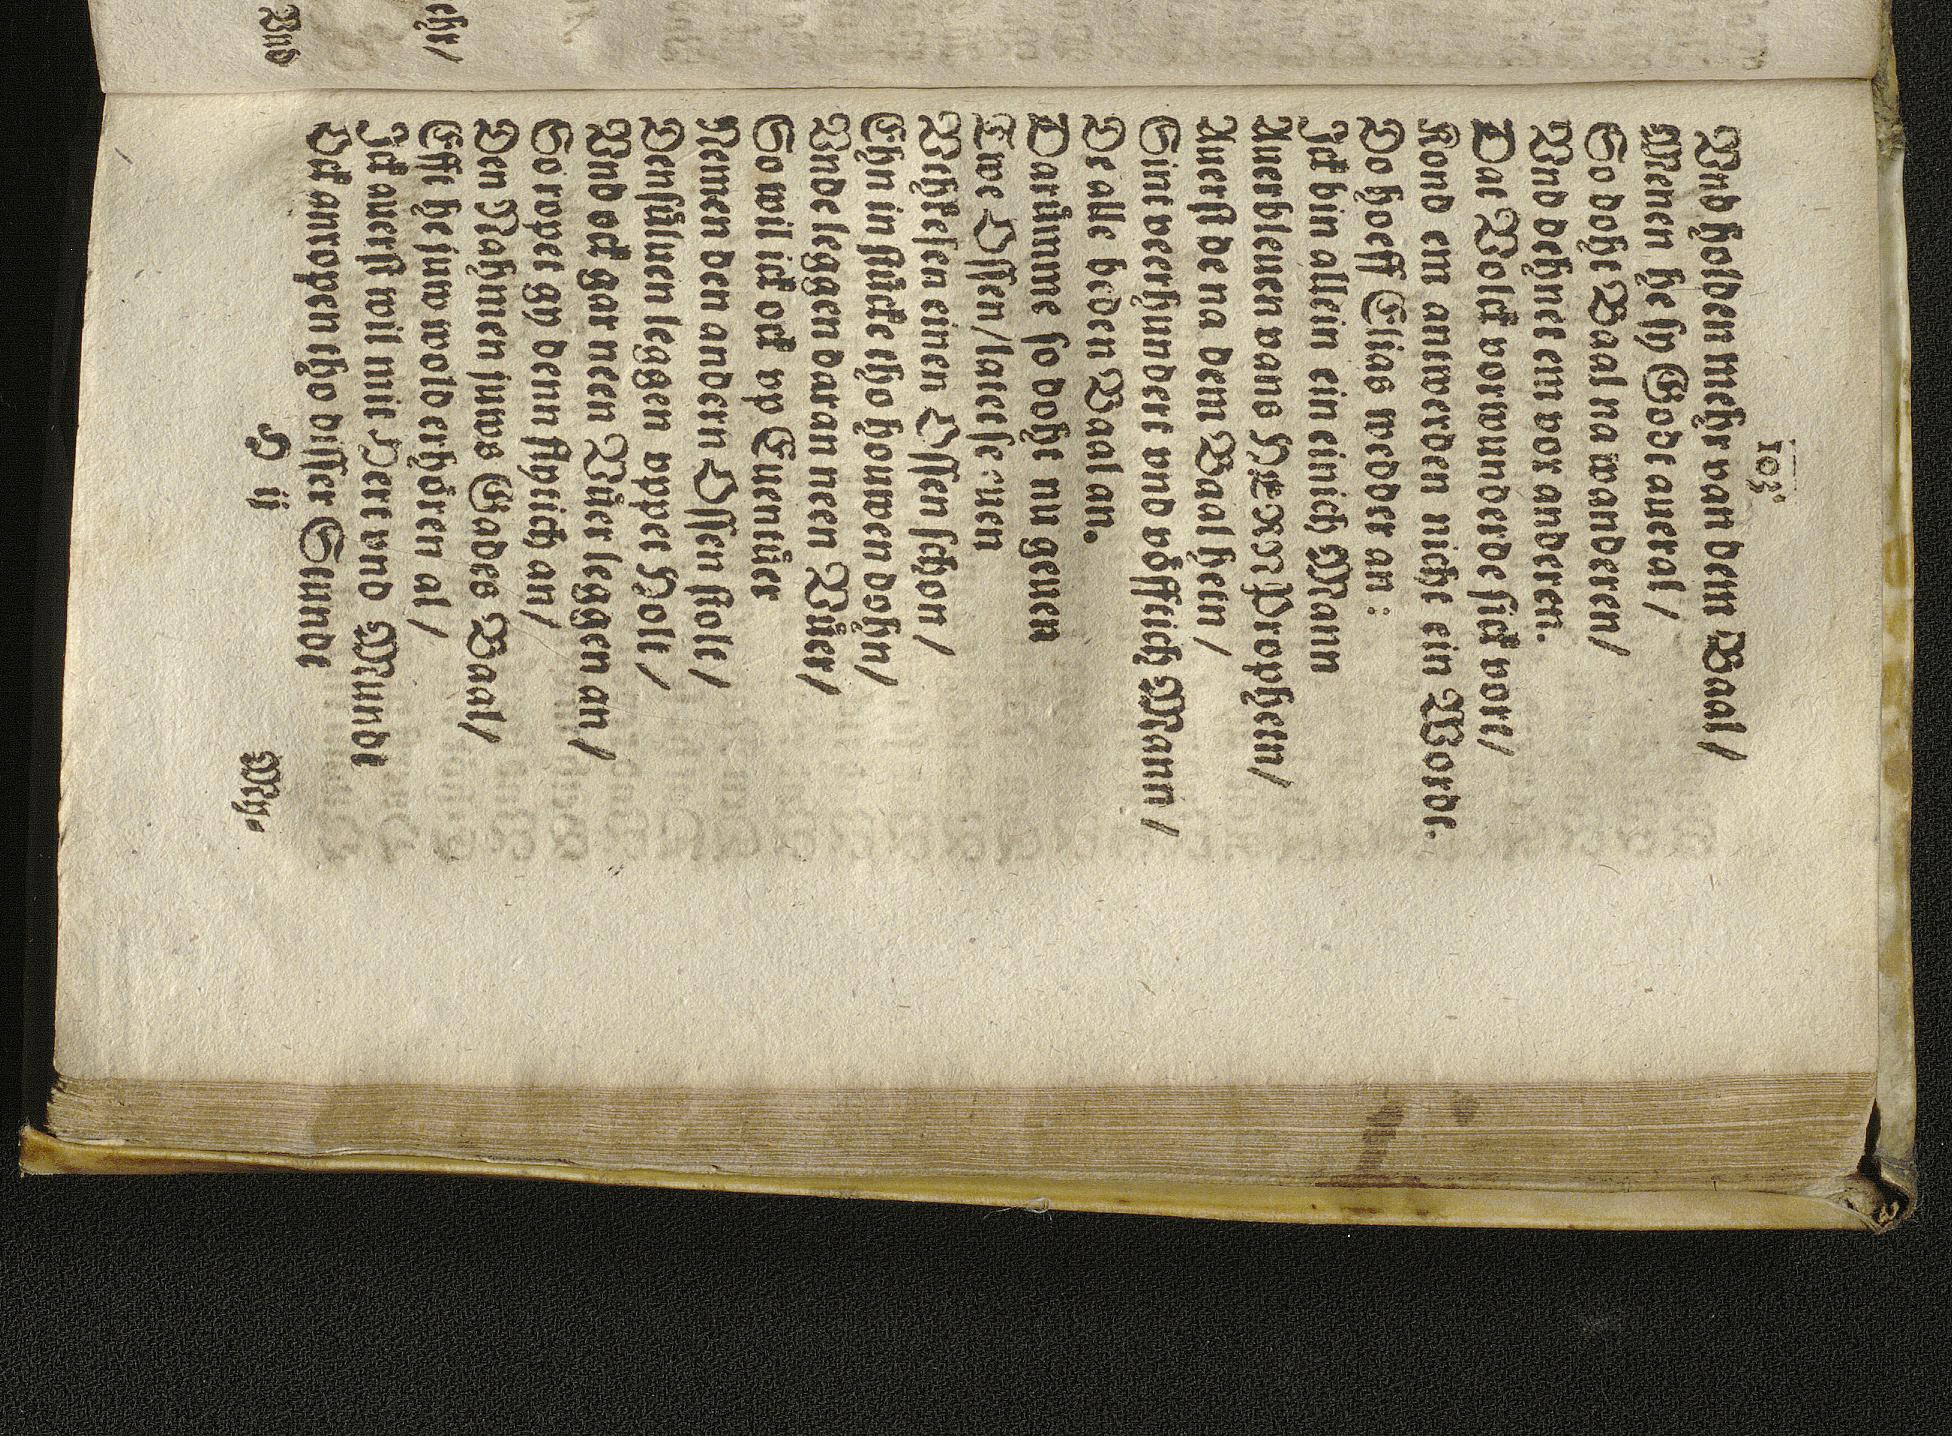 103
Vnd holden mehr van dem Baal /
Menen he sy Godt aueral /
So doht Baal na wanderen /
Vnd dehnet em vor anderen.
Dat Volck vorwunderde sick vort /
Kond em antwerden nicht ein Wordt.
Do hoeff Elias wedder an:
Ick bin allein ein einich Mann
Auerbleuen vans HERRN Propheten /
Auerst de na dem Baal heten /
Sint veerhundert vnd vöfftich Mann /
De alle beden Baal an.
Darümme so doht nu geuen
Twe Ossen / latet se euen
Vthlesen einen Ossen schon /
Ehn in stücke tho houwen dohn /
Vnde leggen daran neen Vüer /
So wil ick ock vp Euentüer
Nemen den andern Ossen stolt /
Densüluen leggen vppet Holt /
Vnd ock gar neen Vüer leggen an /
So ropet gy denn flytich an /
Den Nahmen juwes Gades Baal /
Efft he juw wold erhören al /
Ick auerst wil mit Hert vnd Mundt
Ick anropen tho disser Stundt
G iij
Myn
ehr /
Vnd